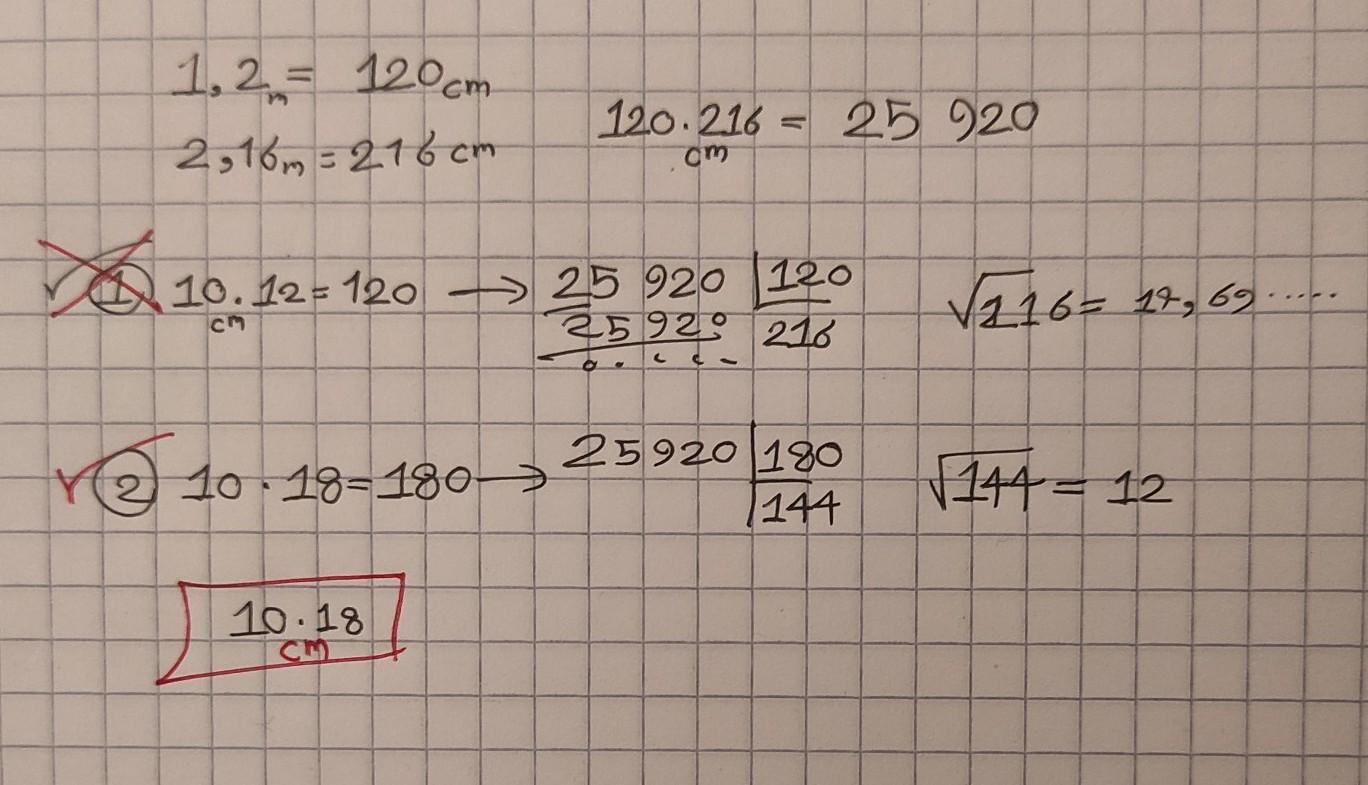 1,2m = 120cm
2,16m = 216 cm
120.216 = 25 920
cm
1 10.12=120 → 25 920 | 120
cm
25920 216
√116 = 14,69.....
2 10.18=180 → 25920 | 180
144
√144 = 12
10.18
cm